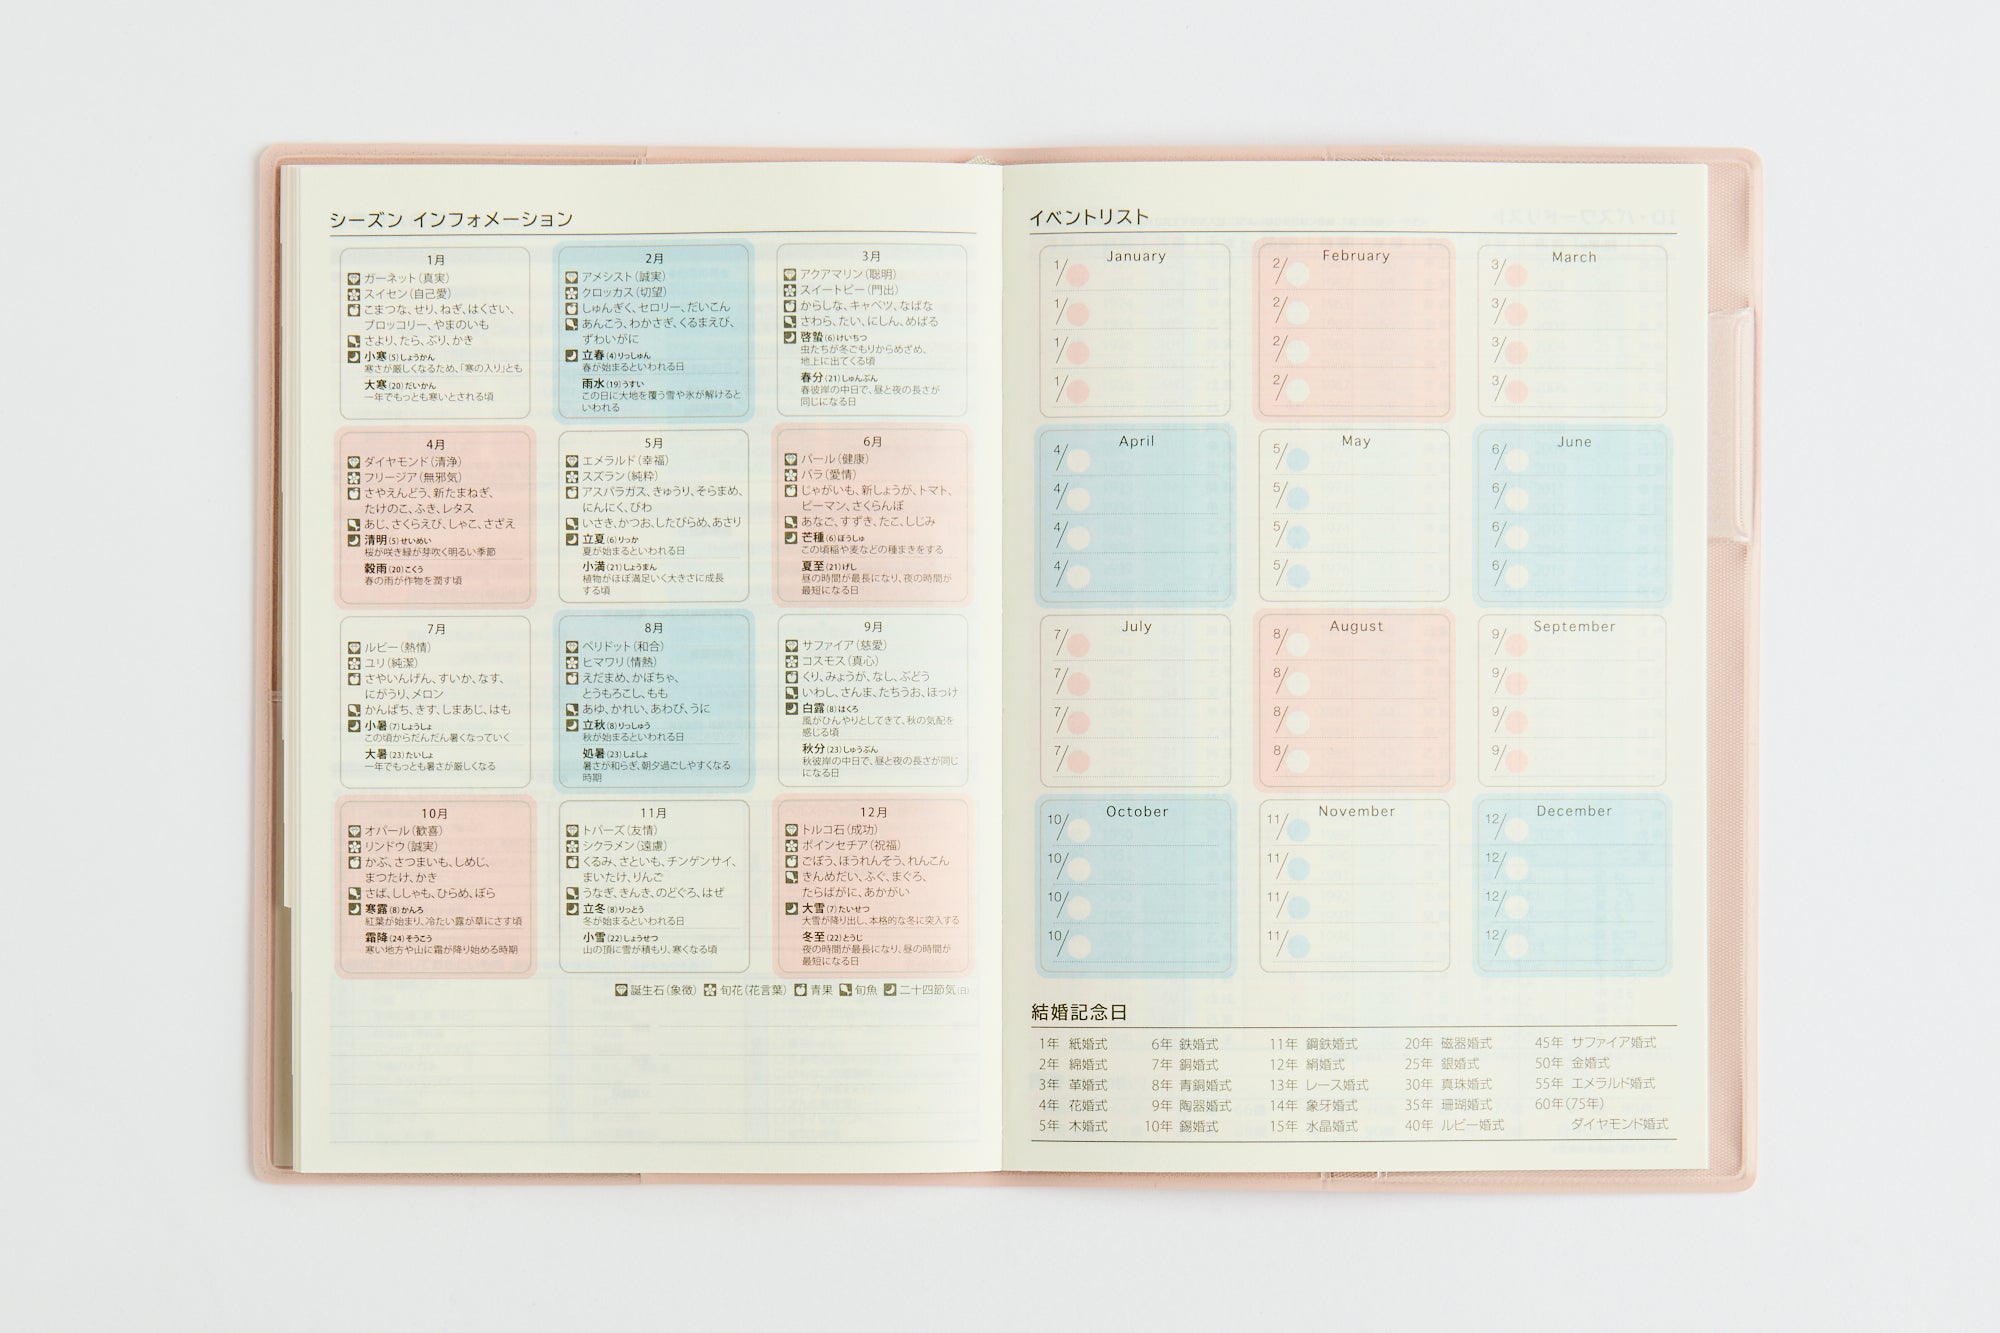 シーズン インフォメーション
1月
ガーネット（真実）
スイセン（自己愛）
こまつな、せり、ねぎ、はくさい、
ブロッコリー、やまのいも
さより、たら、ぶり、かき
小寒(5)しょうかん
寒さが厳しくなるため、「寒の入り」とも
大寒(20)だいかん
一年でもっとも寒いとされる頃
2月
アメシスト（誠実）
クロッカス（切望）
しゅんぎく、セロリー、だいこん
あんこう、わかさぎ、くるまえび、
ずわいがに
立春(4)りっしゅん
春が始まるといわれる日
雨水(19)うすい
この日に大地を覆う雪や氷が解けると
いわれる
3月
アクアマリン（聡明）
スイートピー（門出）
からしな、キャベツ、なばな
さわら、たい、にしん、めばる
啓蟄(6)けいちつ
虫たちが冬ごもりからめざめ、
地上に出てくる頃
春分(21)しゅんぶん
春彼岸の中日で、昼と夜の長さが
同じになる日
4月
ダイヤモンド（清浄）
フリージア（無邪気）
さやえんどう、新たまねぎ、
たけのこ、ふき、レタス
あじ、さくらえび、しゃこ、さざえ
清明(5)せいめい
桜が咲き緑が芽吹く明るい季節
穀雨(20)こくう
春の雨が作物を潤す頃
5月
エメラルド（幸福）
スズラン（純粋）
アスパラガス、きゅうり、そらまめ、
にんにく、びわ
いさき、かつお、したびらめ、あさり
立夏(6)りっか
夏が始まるといわれる日
小満(21)しょうまん
植物がほぼ満足いく大きさに成長
する頃
6月
パール（健康）
バラ（愛情）
じゃがいも、新しょうが、トマト、
ピーマン、さくらんぼ
あなご、すずき、たこ、しじみ
芒種(6)ぼうしゅ
この頃稲や麦などの種まきをする
夏至(21)げし
昼の時間が最長になり、夜の時間が
最短になる日
7月
ルビー（熱情）
ユリ（純潔）
さやいんげん、すいか、なす、
にがうり、メロン
かんぱち、きす、しまあじ、はも
小暑(7)しょうしょ
この頃からだんだん暑くなっていく
大暑(23)たいしょ
一年でもっとも暑さが厳しくなる
8月
ペリドット（和合）
ヒマワリ（情熱）
えだまめ、かぼちゃ、
とうもろこし、もも
あゆ、かれい、あわび、うに
立秋(8)りっしゅう
秋が始まるといわれる日
処暑(23)しょしょ
暑さが和らぎ、朝夕過ごしやすくなる
時期
9月
サファイア（慈愛）
コスモス（真心）
くり、みょうが、なし、ぶどう
いわし、さんま、たちうお、ほっけ
白露(8)はくろ
風がひんやりとしてきて、秋の気配を
感じる頃
秋分(23)しゅうぶん
秋彼岸の中日で、昼と夜の長さが同じ
になる日
10月
オパール（歓喜）
リンドウ（誠実）
かぶ、さつまいも、しめじ、
まつたけ、かき
さば、ししゃも、ひらめ、ぼら
寒露(8)かんろ
紅葉が始まり、冷たい露が草にさす頃
霜降(24)そうこう
寒い地方や山に霜が降り始める時期
11月
トパーズ（友情）
シクラメン（遠慮）
くるみ、さといも、チンゲンサイ、
まいたけ、りんご
うなぎ、きんき、のどぐろ、はぜ
立冬(8)りっとう
冬が始まるといわれる日
小雪(22)しょうせつ
山の頂に雪が積もり、寒くなる頃
12月
トルコ石（成功）
ポインセチア（祝福）
ごぼう、ほうれんそう、れんこん
きんめだい、ふぐ、まぐろ、
たらばがに、あかがい
大雪(7)たいせつ
大雪が降り出し、本格的な冬に突入する
冬至(22)とうじ
夜の時間が最長になり、昼の時間が
最短になる日
誕生石（象徴） 旬花（花言葉） 青果 旬魚 二十四節気(日)
イベントリスト
January
1/
1/
1/
1/
February
2/
2/
2/
2/
March
3/
3/
3/
3/
April
4/
4/
4/
4/
May
5/
5/
5/
5/
June
6/
6/
6/
6/
July
7/
7/
7/
7/
August
8/
8/
8/
8/
September
9/
9/
9/
9/
October
10/
10/
10/
10/
November
11/
11/
11/
11/
December
12/
12/
12/
12/
結婚記念日
1年 紙婚式 6年 鉄婚式 11年 鋼鉄婚式 20年 磁器婚式 45年 サファイア婚式
2年 綿婚式 7年 銅婚式 12年 絹婚式 25年 銀婚式 50年 金婚式
3年 革婚式 8年 青銅婚式 13年 レース婚式 30年 真珠婚式 55年 エメラルド婚式
4年 花婚式 9年 陶器婚式 14年 象牙婚式 35年 珊瑚婚式 60年（75年）
5年 木婚式 10年 錫婚式 15年 水晶婚式 40年 ルビー婚式 ダイヤモンド婚式